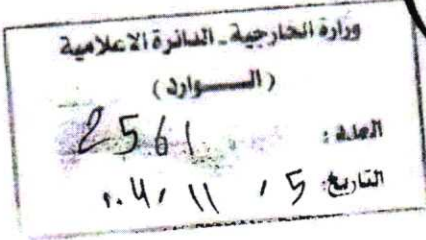 وزارة الخارجية ـ الدائرة الاعلامية
( الـــــوارد )
العدد : 2561
التاريخ: 5 / 11 / ٠4